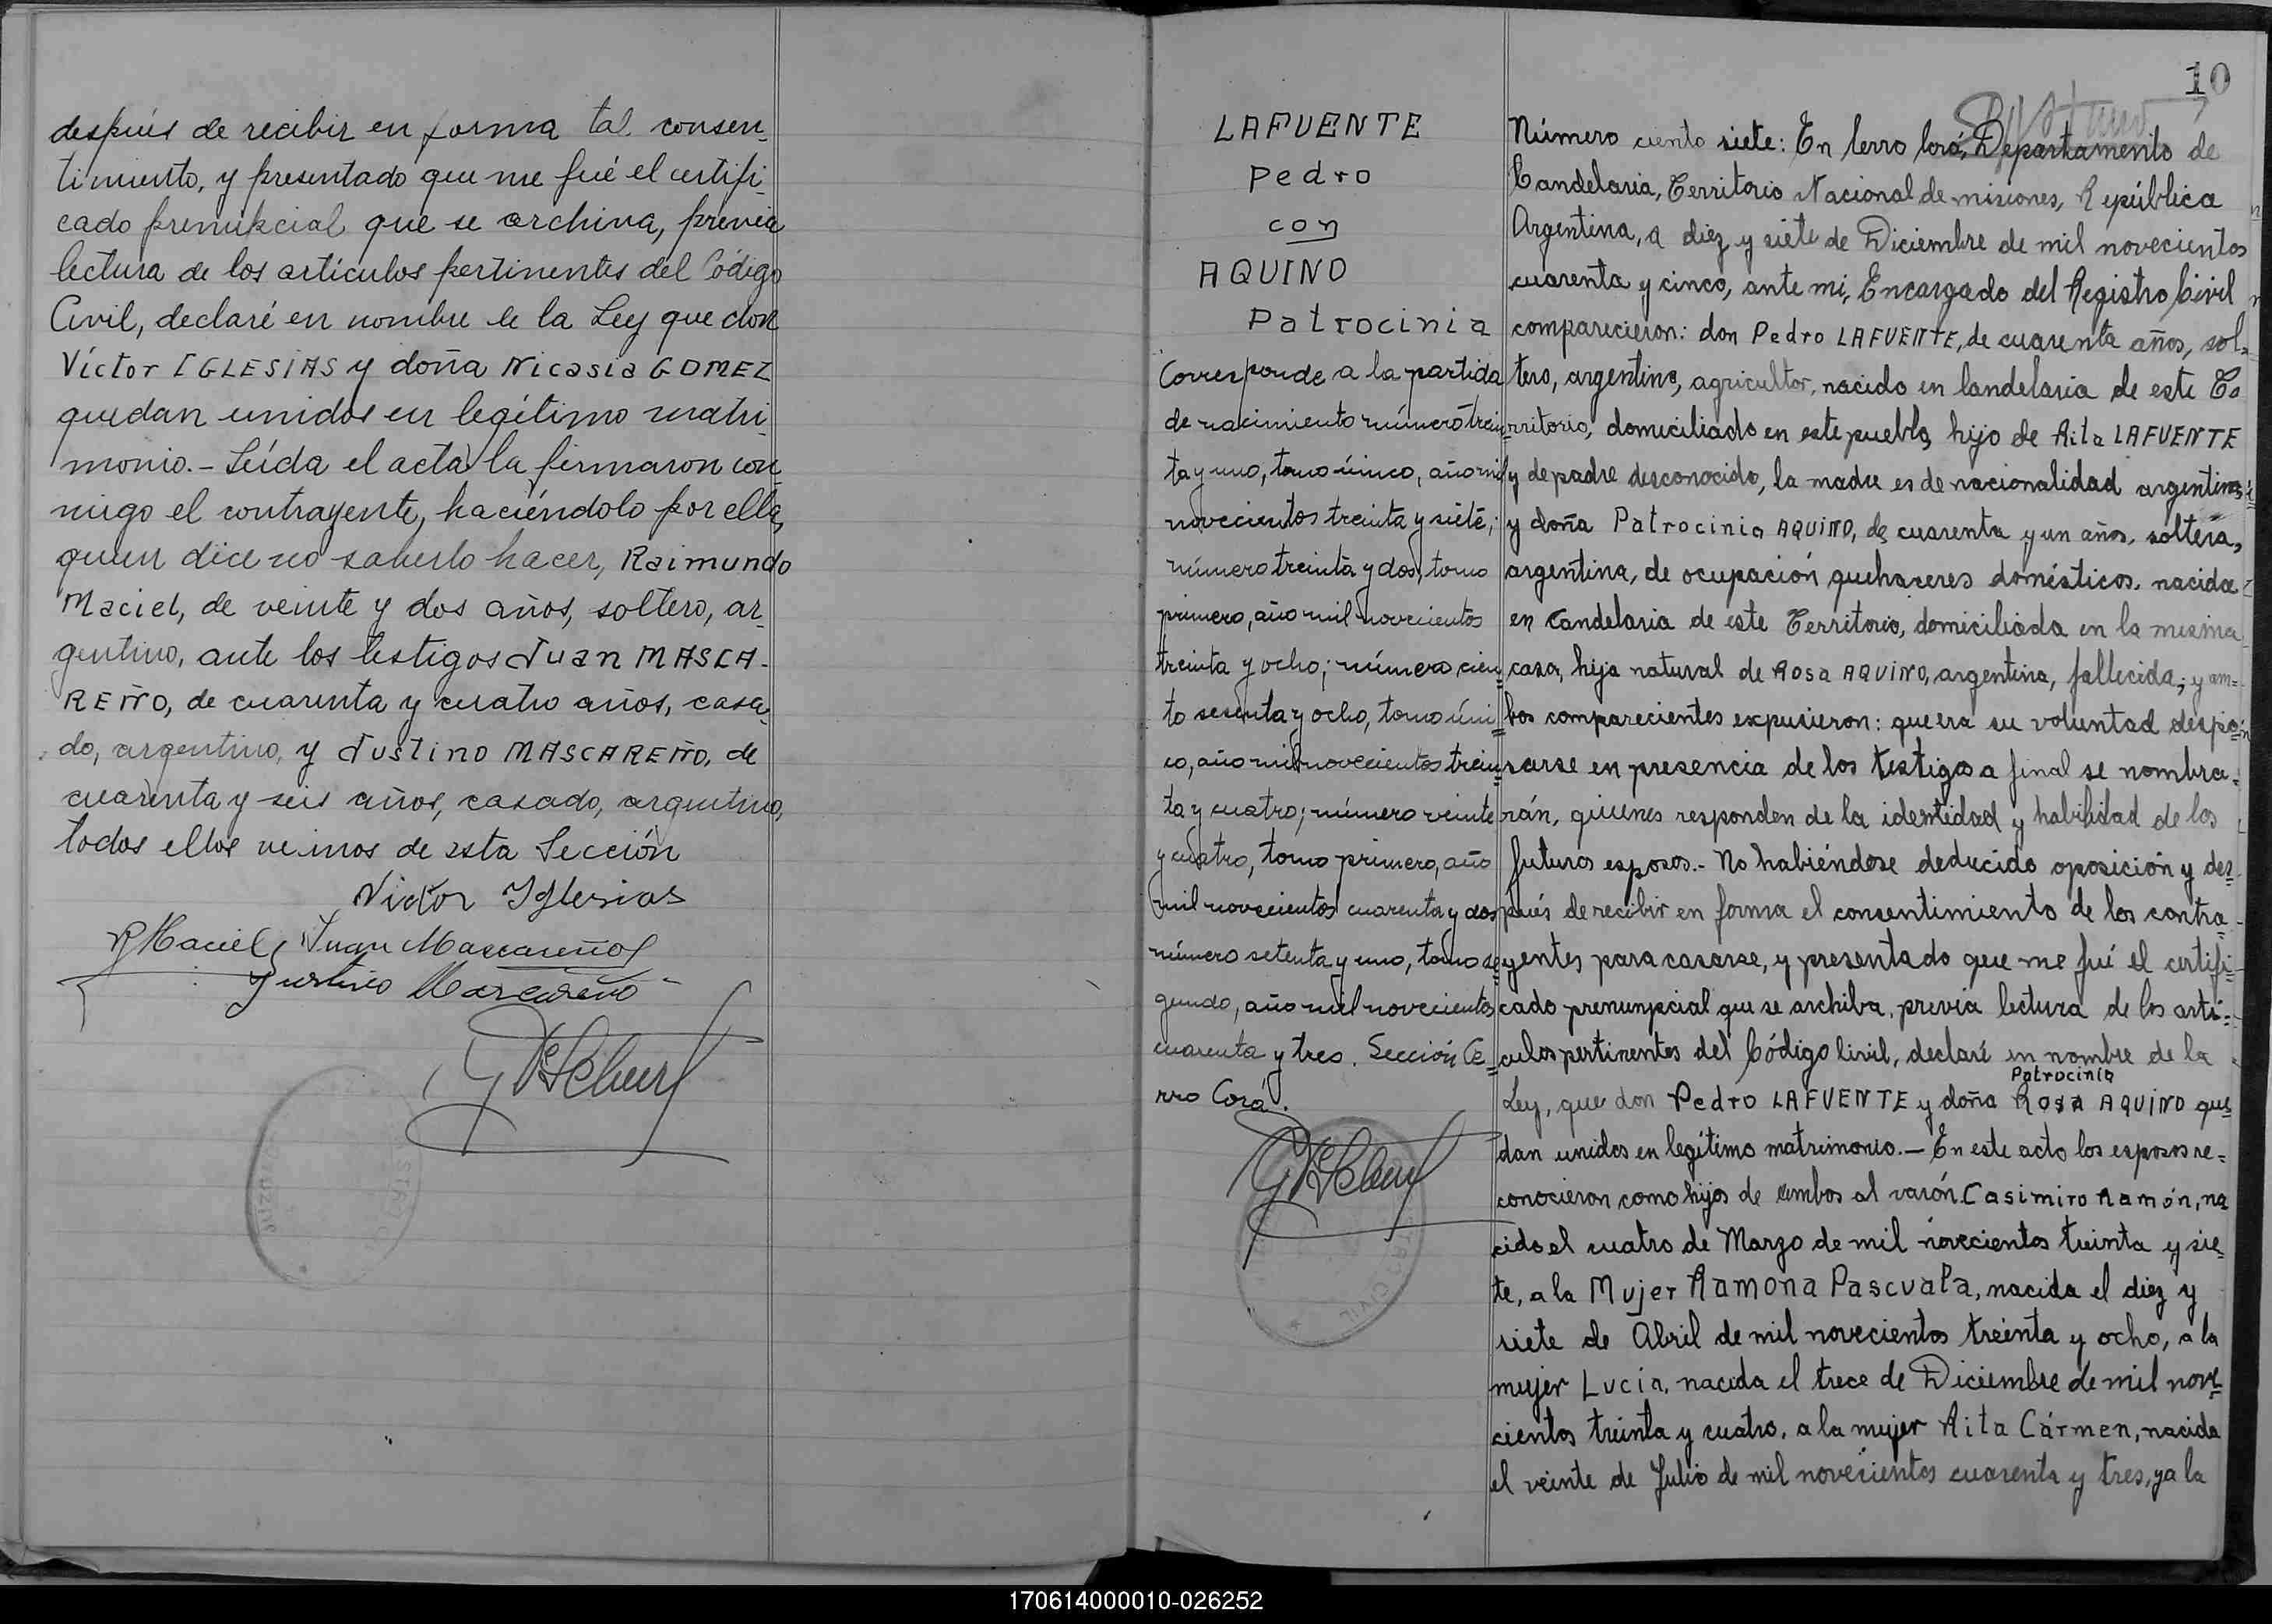 después de recibir en forma tal consen-
timiento, y presentado que me fué el certifi-
cado prenupcial que se archiva, previa
lectura de los artículos pertinentes del Código
Civil, declaré en nombre de la Ley que don
Víctor IGLESIAS y doña Nicasia GOMEZ
quedan unidos en legítimo matri-
monio.- Leída el acta la firmaron con-
migo el contrayente, haciéndolo por ella,
quien dice no saberlo hacer, Raimundo
Maciel, de veinte y dos años, soltero, ar-
gentino, ante los testigos Juan MASCA-
REÑO, de cuarenta y cuatro años, casa-
do, argentino, y Justino MASCAREÑO, de
cuarenta y seis años, casado, argentino,
todos ellos vecinos de esta Sección
Victor Yglesias
R Maciel Juan Mascareño
Justino Mascareño
10
LAFUENTE
Pedro
con
AQUINO
Patrocinia
Corresponde a la partida
de nacimiento número trein-
ta y uno, tomo único, año mil
novecientos treinta y siete;
número treinta y dos, tomo
primero, año mil novecientos
treinta y ocho; número cien-
to sesenta y ocho, tomo úni-
co, año mil novecientos trein-
ta y cuatro; número veinte
y cuatro, tomo primero, año
mil novecientos cuarenta y dos
número setenta y uno, tomo se-
gundo, año mil novecientos
cuarenta y tres. Sección Ce-
rro Corá.
REGISTRO CIVIL
Número ciento siete: En Cerro Corá, Departamento de
Candelaria, Territorio Nacional de misiones, República
Argentina, a diez y siete de Diciembre de mil novecientos
cuarenta y cinco, ante mi, Encargado del Registro Civil
comparecieron: don Pedro LAFUENTE, de cuarenta años, sol-
tero, argentino, agricultor, nacido en Candelaria de este Te
rritorio, domiciliado en este pueblo, hijo de Rita LAFUENTE
y de padre desconocido, la madre es de nacionalidad argentina;
y doña Patrocinia AQUINO, de cuarenta y un años, soltera,
argentina, de ocupación quehaceres domésticos, nacida
en Candelaria de este Territorio, domiciliada en la misma
casa, hija natural de Rosa AQUINO, argentina, fallecida; y am=
bos comparecientes expusieron: que era su voluntad despo=
sarse en presencia de los testigos a final se nombra=
rán, quienes responden de la identidad y habilidad de los
futuros esposos.- No habiéndose deducido oposición y des-
pués de recibir en forma el consentimiento de los contra-
yentes para casarse, y presentado que me fué el certifi-
cado prenunpcial que se archiba, previa lectura de los artí=
culos pertinentes del Código Civil, declaré en nombre de la
Patrocinia
Ley, que don Pedro LAFUENTE y doña Rosa AQUINO que-
dan unidos en legítimo matrimonio.- En este acto los esposos re=
conocieron como hijos de ambos al varón Casimiro Ramón, na
cido el cuatro de Marzo de mil novecientos treinta y sie-
te, a la Mujer Ramona Pascuala, nacida el diez y
siete de Abril de mil novecientos treinta y ocho, a la
mujer Lucia, nacida el trece de Diciembre de mil nove-
cientos treinta y cuatro, a la mujer Rita Cármen, nacida
el veinte de Julio de mil novecientos cuarenta y tres, y a la
170614000010-026252